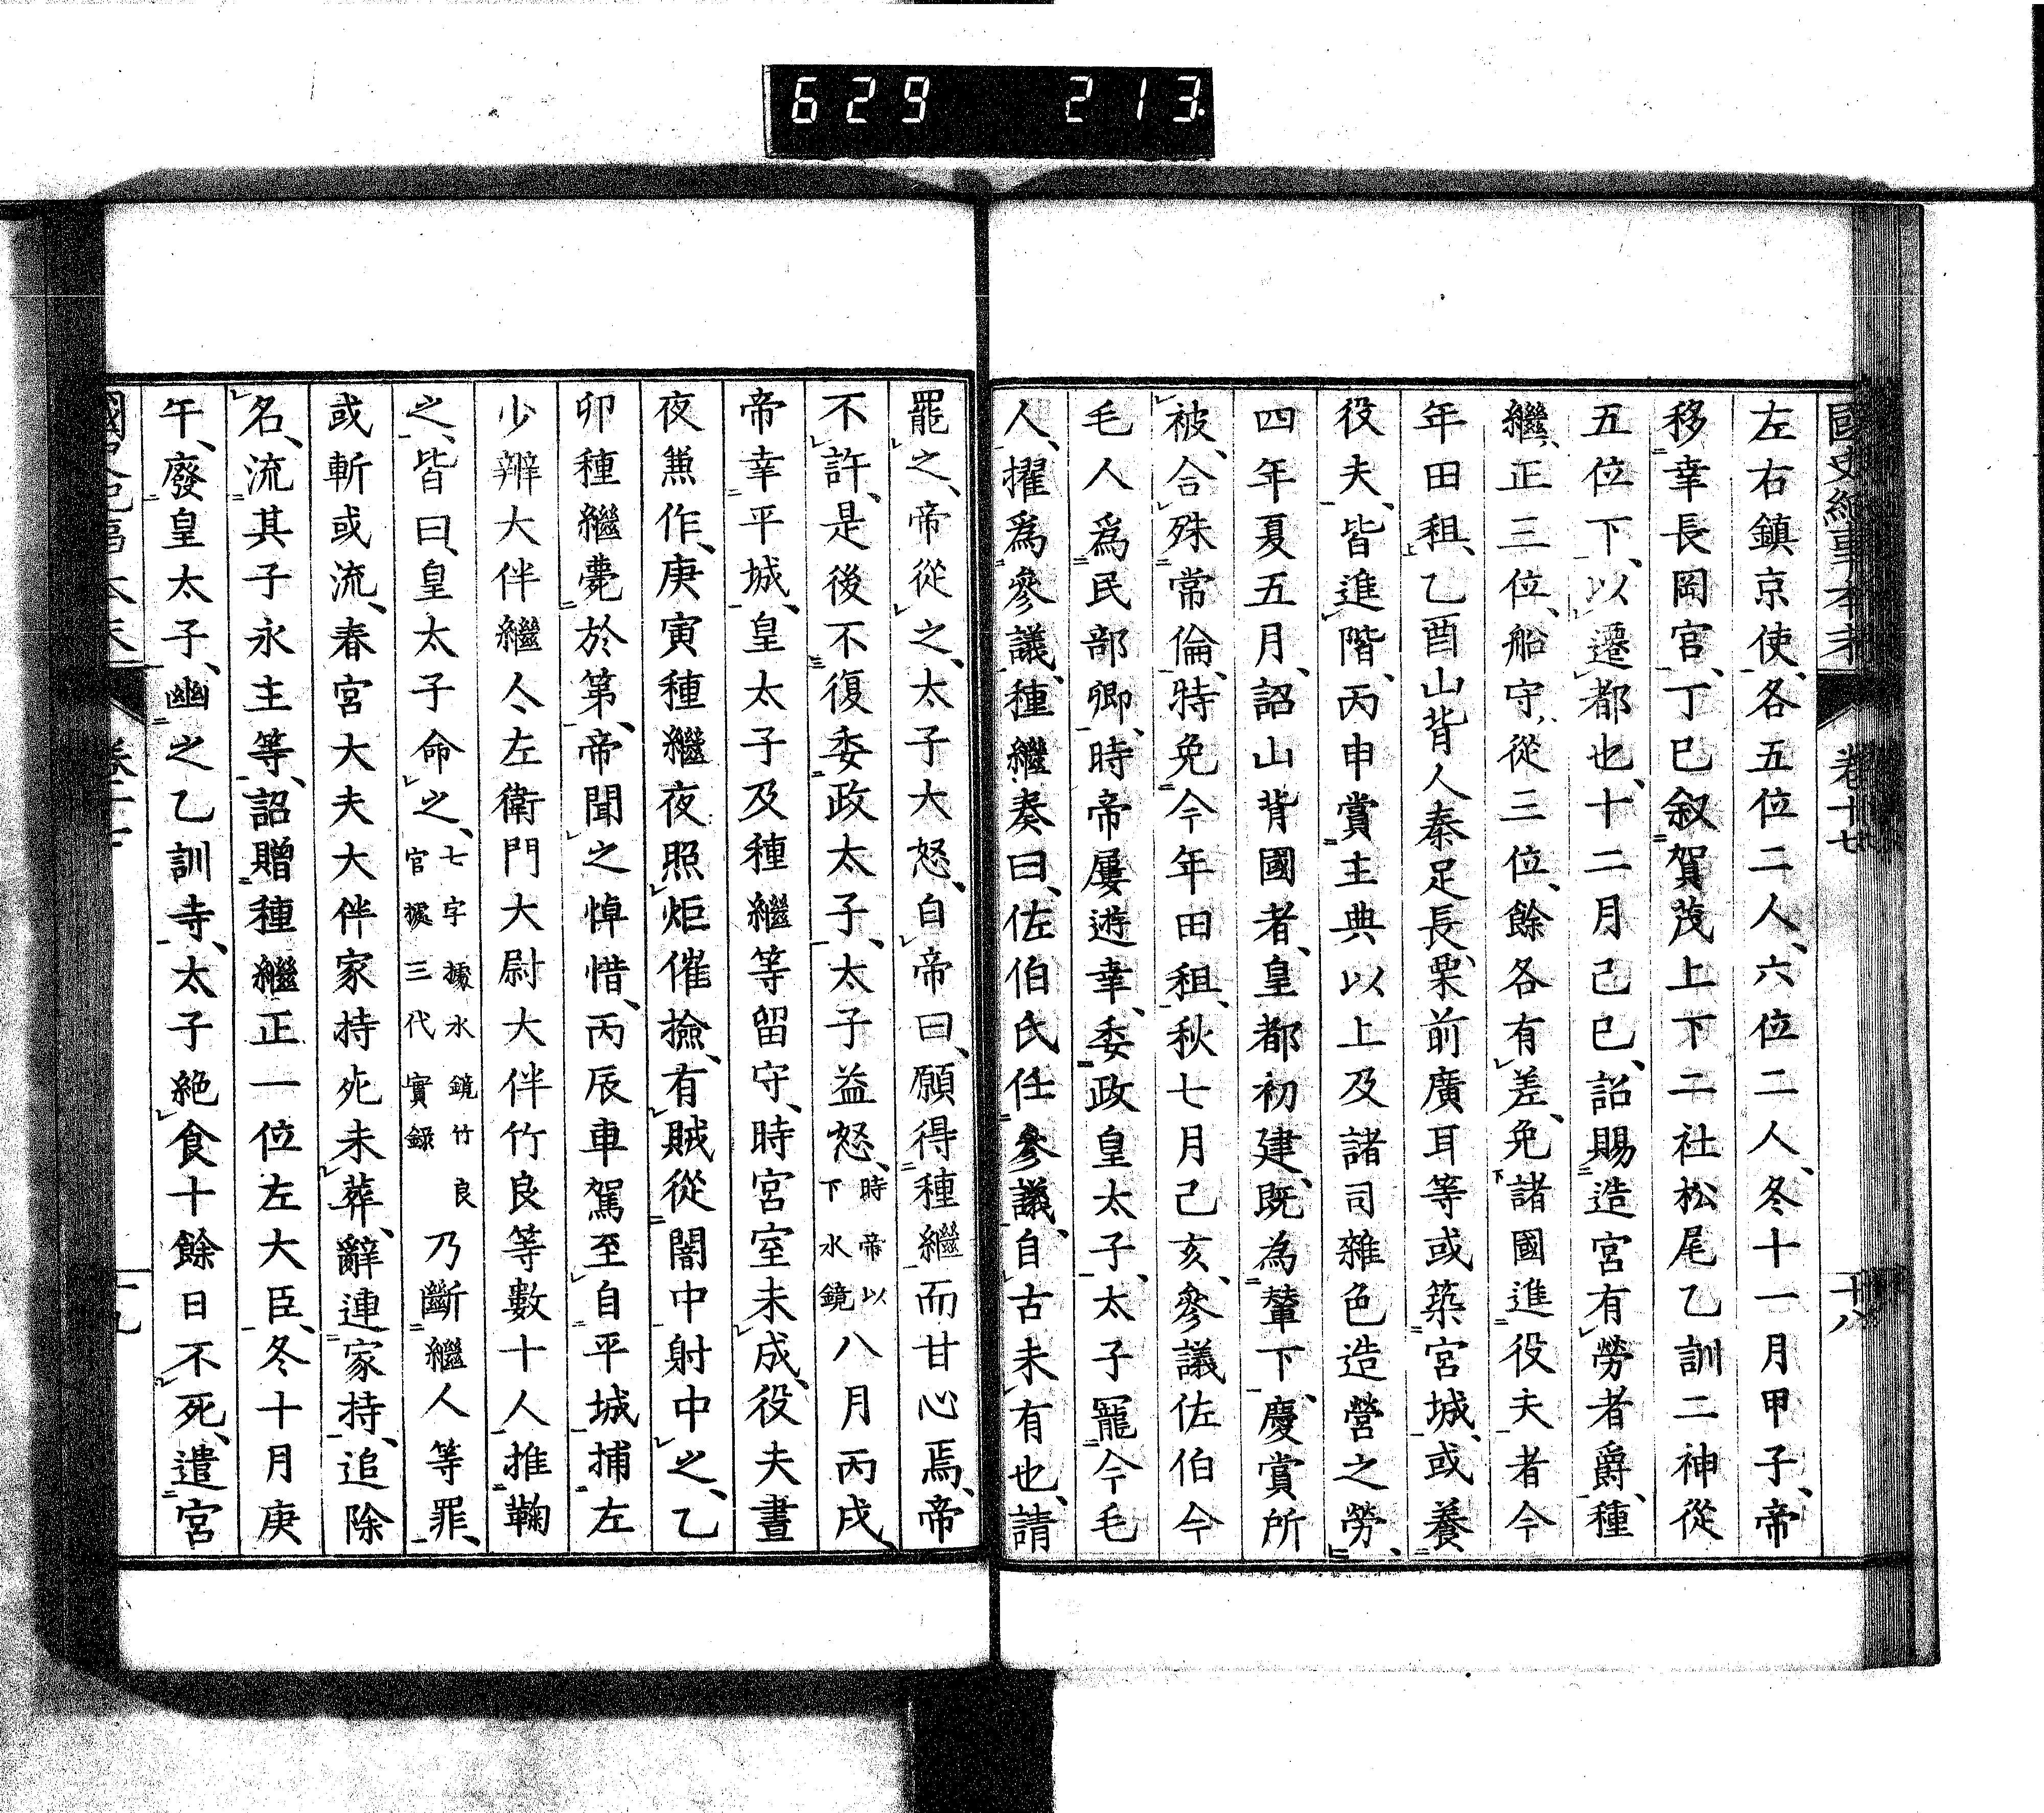 629 213
國史紀事本末 卷十七 十八
左右鎮京使、各五位二人、六位二人、冬十一月甲子、帝
移幸長岡宮、丁巳叙賀茂上下二社松尾乙訓二神從
五位下、以遷都也、十二月己巳、詔賜造宮有勞者爵、種
繼、正三位、船守、從三位、餘各有差、免諸國進役夫者今
年田租、乙酉山背人秦足長、栗前廣耳等或築宮城、或養
役夫、皆進階、丙申賞主典以上及諸司雜色造營之勞、
四年夏五月、詔山背國者、皇都初建、既為輦下、慶賞所
被、合殊常倫、特免今年田租、秋七月己亥、參議佐伯今
毛人爲民部卿、時帝屢遊幸、委政皇太子、太子寵今毛
人、擢爲參議、種繼奏曰、佐伯氏任參議、自古未有也、請
罷之、帝從之、太子大怒、白帝曰、願得種繼而甘心焉、帝
不許、是後不復委政太子、太子益怒、時帝以下水鏡八月丙戌、
帝幸平城、皇太子及種繼等留守、時宮室未成、役夫晝
夜兼作、庚寅種繼夜照炬催撿、有賊從闇中射中之、乙
卯種繼薨於第、帝聞之悼惜、丙辰車駕至自平城捕左
少辨大伴繼人左衛門大尉大伴竹良等數十人推鞠
之、皆曰、皇太子命之、七字據水鏡竹良官據三代實錄乃斷繼人等罪、
或斬或流、春宮大夫大伴家持死未葬、辭連家持、追除
名、流其子永主等、詔贈種繼正一位左大臣、冬十月庚
午、廢皇太子、幽之乙訓寺、太子絶食十餘日不死、遣宮